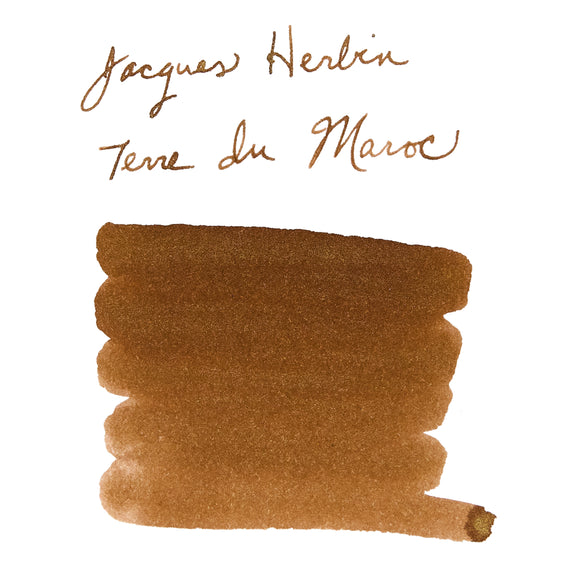 Jacques Herbin
Terre du Maroc